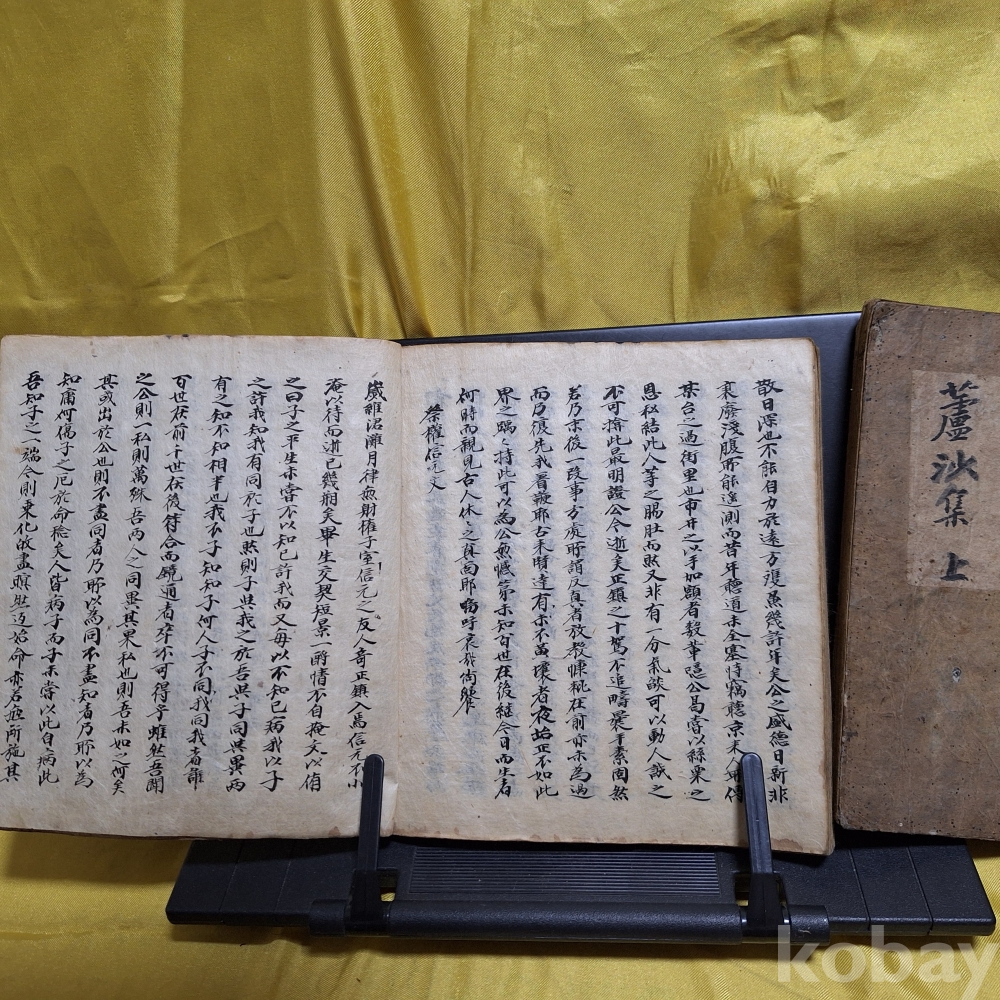 散日深也不能自力於遠方頀燕幾許年矣公之盛德日新非
裏廢淺腹所能遙測而昔年聽道未全塞時竊聽京來人毎傳
某台之過街里也市井之以手加額者數輩噫公曷嘗以絲粟之
恩私結此人等之腸肚而然又非有一分氣談可以動人誠之
不可揜此最明證公今逝矣正鎮之卜駕不追疇曩手素閣然
若乃末後一段事方處所謂反真者放教悚秕在前亦未為過
而乃復先我着鞭耶古來賢達有求不菑壞者夜始正不如此
界之蹢〻持此可以為公無憾第未知百世在後繼今日而生者
何時而覯見古人休〻之真面耶嗚呼哀哉尚饗
祭權信元文
歲維涒灘月律無射權子室信元之友人奇正鎮入焉信元不小
淹以待而逝已幾朔矣畢生交契短景一酹情不自掩文以侑
之曰子之平生未嘗不以知己許我而又毋以不知己病我以子
之許我知我有同於子也然則子與我之於吾與子同與異兩
有之知不知相半也我不子知知子何人子不同我同我者誰
百世在前千世在後待合而鏡通者卒不可得乎雖然吾聞
之公則一私則萬殊吾兩人之同異其果私也則吾未如之何矣
其或出於公也則不盡同者乃所以為同不盡知者乃所以為
知庸何傷子之厄於命稔矣人皆病子而子未嘗以此自病此
吾知子之一端今則乘化故盡暝然返始命亦若無所施其
蘆沙集 上
kobay